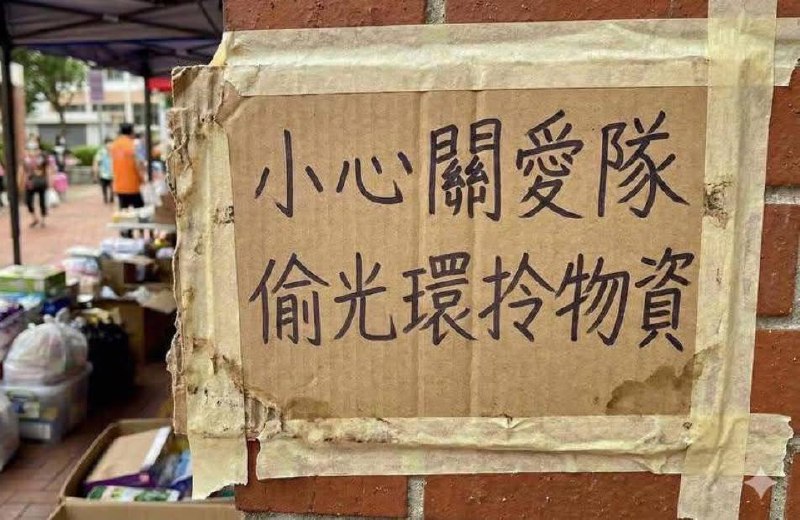 小心關愛隊
偷光環拎物資